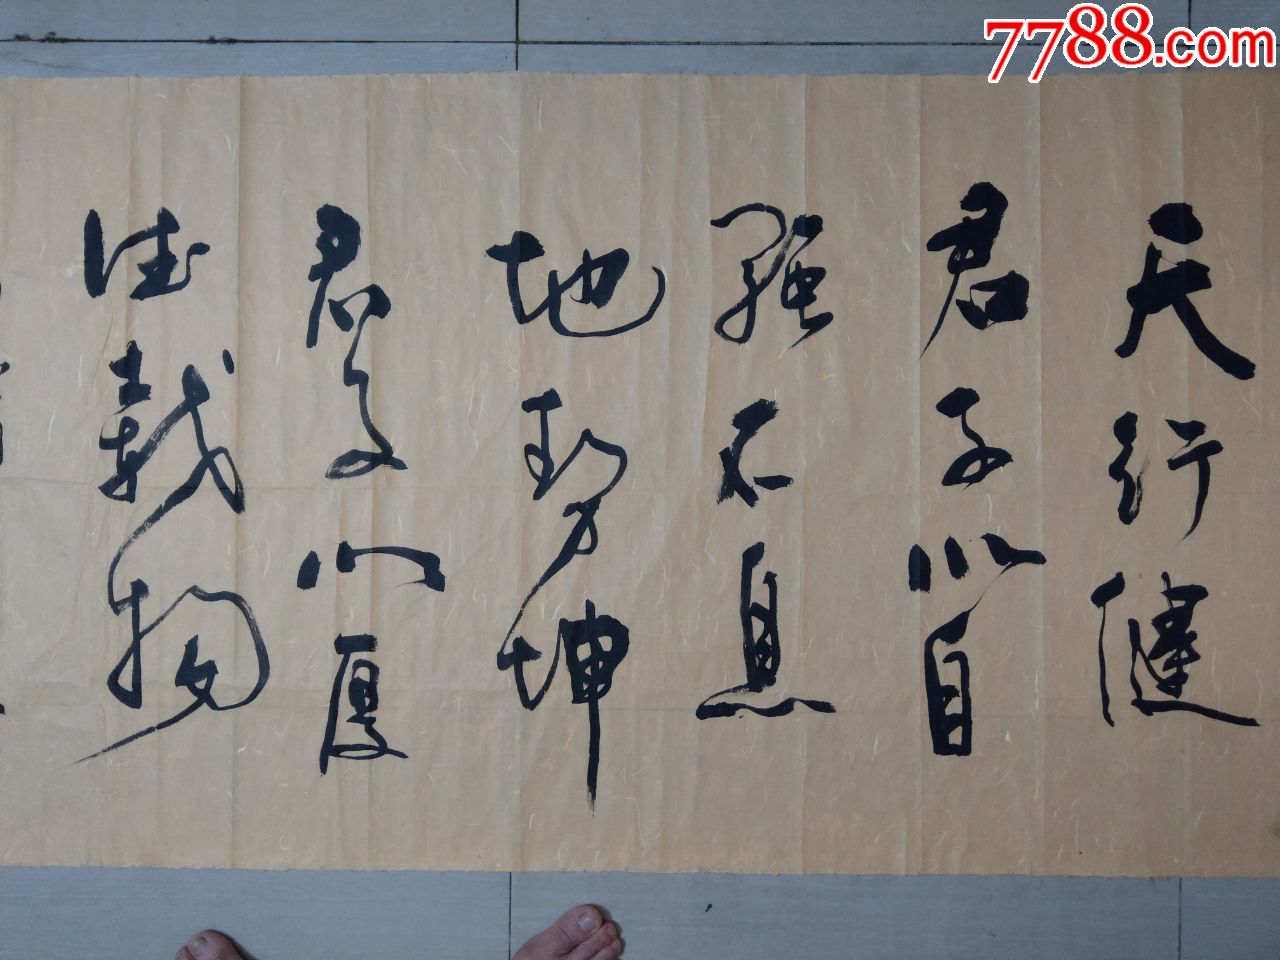 天行健
君子以自
强不息
地势坤
君子以厚
德载物
7788.com